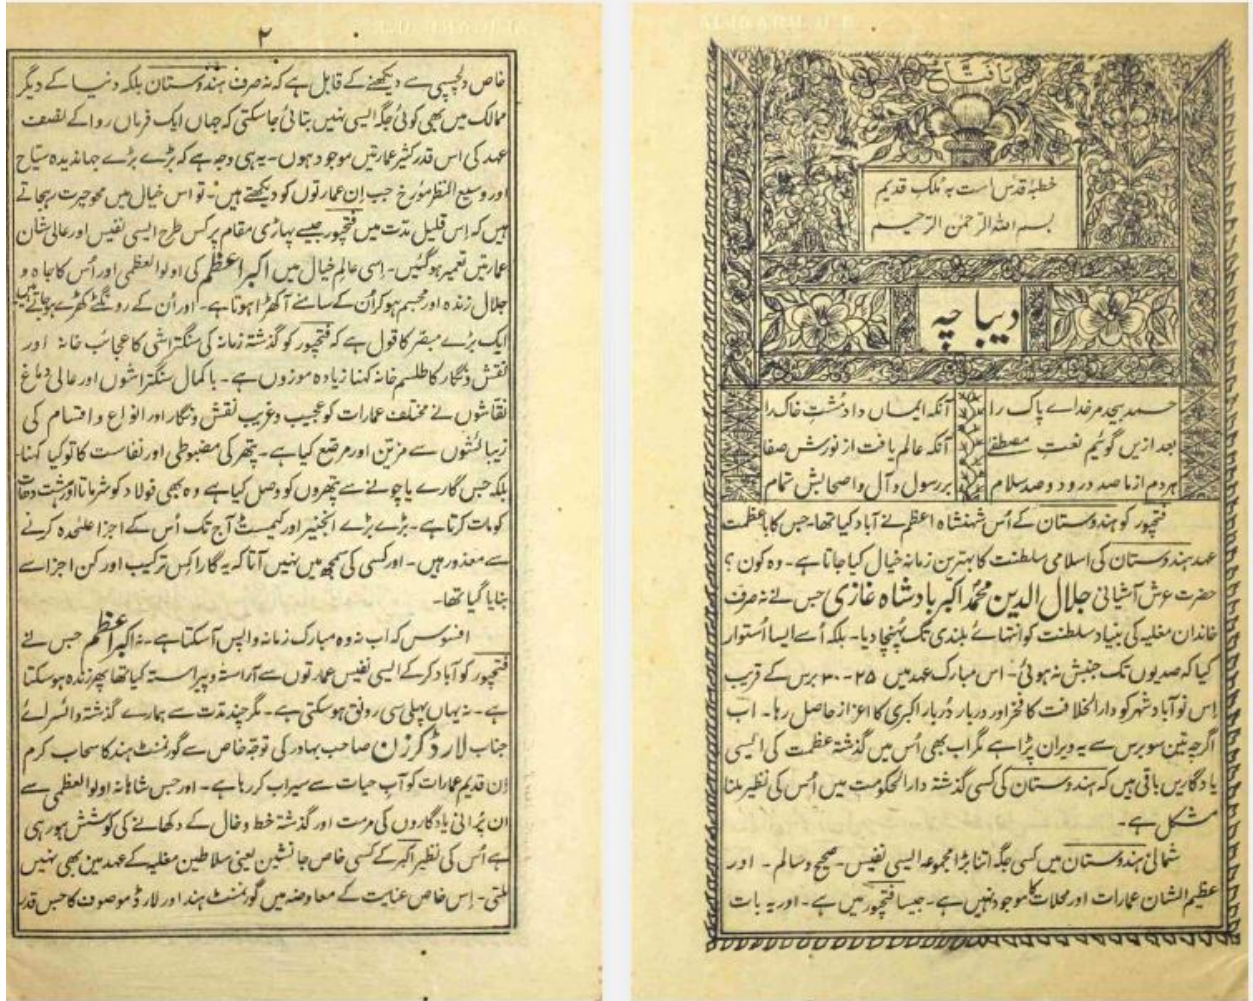 ALIGARH.U.B
یا فتاح
خطبۂ قدس است بہ ملک قدیم
بسم اللہ الرحمٰن الرحیم
دیباچہ
حمد بیحد مر خداے پاک را آنکہ ایماں داد مشت خاک را
بعد ازیں گوئیم نعت مصطفےٰ آنکہ عالم یافت از نورش صفا
ہردم از ما صد درود و صد سلام بر رسول و آل و اصحابش تمام
فتحپور کو ہندوستان کے اُس شہنشاہ اعظم نے آباد کیا تھا۔ جس کا باعظمت
عہد ہندوستان کی اسلامی سلطنت کا بہترین زمانہ خیال کیا جاتا ہے۔ وہ کون؟
حضرت عرش آشیانی جلال الدین محمد اکبر بادشاہ غازی جس نے نہ صرف
خاندان مغلیہ کی بنیاد سلطنت کو انتہاے بلندی تک پہنچا دیا۔ بلکہ اُسے ایسا اُستوار
کیا کہ صدیوں تک جنبش نہ ہوئی۔ اس مبارک عہد میں ۲۵-۳۰ برس کے قریب
اِس نو آباد شہر کو دارالخلافت کا فخر اور دربار دُربار اکبری کا اعزاز حاصل رہا۔ اب
اگرچہ تین سو برس سے یہ ویران پڑا ہے مگر اب بھی اُس میں گذشتہ عظمت کی ایسی
یادگاریں باقی ہیں کہ ہندوستان کی کسی گذشتہ دارالحکومت میں اُس کی نظیر ملنا
مشکل ہے۔
شمالی ہندوستان میں کسی جگہ اتنا بڑا مجموعہ ایسی نفیس۔ صحیح و سالم۔ اور
عظیم الشان عمارات اور محلات کا موجود نہیں ہے۔ جیسا فتحپور میں ہے۔ اور یہ بات
۲
خاص دلچسپی سے دیکھنے کے قابل ہے کہ نہ صرف ہندوستان بلکہ دنیا کے دیگر
ممالک میں بھی کوئی جگہ ایسی نہیں بتائی جاسکتی کہ جہاں ایک فرماں روا کے نصف
عہد کی اس قدر کثیر عمارتیں موجود ہوں۔ یہ ہی وجہ ہے کہ بڑے بڑے جہاندیدہ سیّاح
اور وسیع النظر مورّخ جب اِن عمارتوں کو دیکھتے ہیں۔ تو اس خیال میں محو حیرت رہجاتے
ہیں کہ اِس قلیل مدّت میں فتحپور جیسے پہاڑی مقام پر کس طرح ایسی نفیس اور عالی شان
عمارتیں تعمیر ہوگئیں۔ اِسی عالم خیال میں اکبر اعظم کی اولوالعظمی اور اُس کا جاہ و
جلال زندہ اور مجسم ہو کر اُن کے سامنے آکھڑا ہوتا ہے۔ اور اُن کے رونگٹے کھڑے ہو جاتے ہیں
ایک بڑے مبصّر کا قول ہے کہ فتحپور کو گذشتہ زمانہ کی سنگتراشی کا عجائب خانہ اور
نقش و نگار کا طلسم خانہ کہنا زیادہ موزوں ہے۔ باکمال سنگتراشوں اور عالی دماغ
نقاشوں نے مختلف عمارات کو عجیب و غریب نقش و نگار اور انواع و اقسام کی
زیبائشوں سے مزیّن اور مرصّع کیا ہے۔ پتھر کی مضبوطی اور نفاست کا تو کیا کہنا۔
بلکہ جس گارے یا چونے سے پتھروں کو وصل کیا ہے وہ بھی فولاد کو شرماتا اور ہشت دھات
کو مات کرتا ہے۔ بڑے بڑے انجنیر اور کیمسٹ آج تک اُس کے اجزا علٰحدہ کرنے
سے معذور ہیں۔ اور کسی کی سمجھ میں نہیں آتا کہ یہ گارا کِس ترکیب اور کن اجزا سے
بنایا گیا تھا۔
افسوس کہ اب نہ وہ مبارک زمانہ واپس آسکتا ہے۔ نہ اکبر اعظم جس نے
فتحپور کو آباد کرکے ایسی نفیس عمارتوں سے آراستہ و پیراستہ کیا تھا پھر زندہ ہوسکتا
ہے۔ نہ یہاں پہلی سی رونق ہوسکتی ہے۔ مگر چند مدّت سے ہمارے گذشتہ وائسراے
جناب لارڈ کرزن صاحب بہادر کی توجّہ خاص سے گورنمنٹ ہند کا سحاب کرم
اِن قدیم عمارات کو آبِ حیات سے سیراب کر رہا ہے۔ اور جس شاہانہ اولوالعظمی سے
ان پُرانی یادگاروں کی مرمت اور گذشتہ خط و خال کے دکھانے کی کوشش ہو رہی
ہے اُس کی نظیر اکبر کے کسی خاص جانشین یعنی سلاطین مغلیہ کے عہد میں بھی نہیں
ملتی۔ اِس خاص عنایت کے معاوضہ میں گورنمنٹ ہند اور لارڈ موصوف کا جس قدر